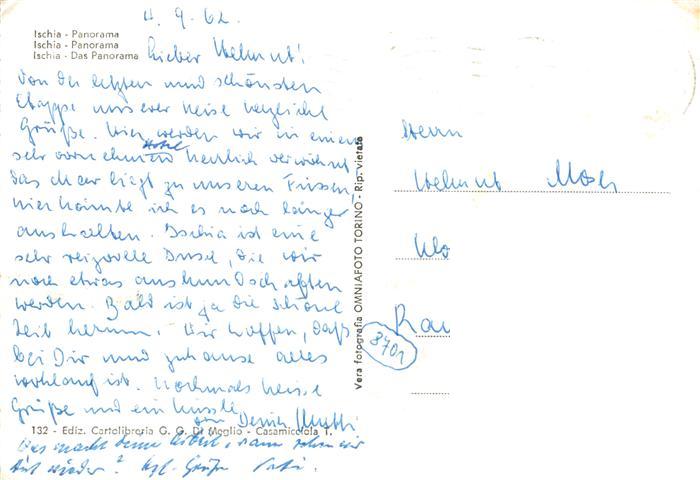 4. 9. 62.
Ischia - Panorama
Ischia - Panorama
Ischia - Das Panorama
Lieber Helmut!
Von der letzten und schönsten
Etappe unserer Reise herzlichst
Grüße. Hier werden wir in einem
sehr vornehmen Hotel herrlich verwöhnt,
das Meer liegt zu unseren Füssen,
hier könnte ich es noch länger
aushalten. Ischia ist eine
sehr reizvolle Insel, die wir
noch etwas auskundschaften
werden. Bald ist ja die schöne
Zeit herum. Wir hoffen, daß
bei Dir und zuhause alles
wohlauf ist. Nochmals heisse
Grüße und ein Küssle
von Deiner Mutti
132 - Ediz. Cartolibreria G. G. Di Meglio - Casamicciola T.
Was macht denn
wieder? Grüße
Vera fotografia OMNIAFOTO TORINO - Rip. vietata
Herrn
Helmut
8701